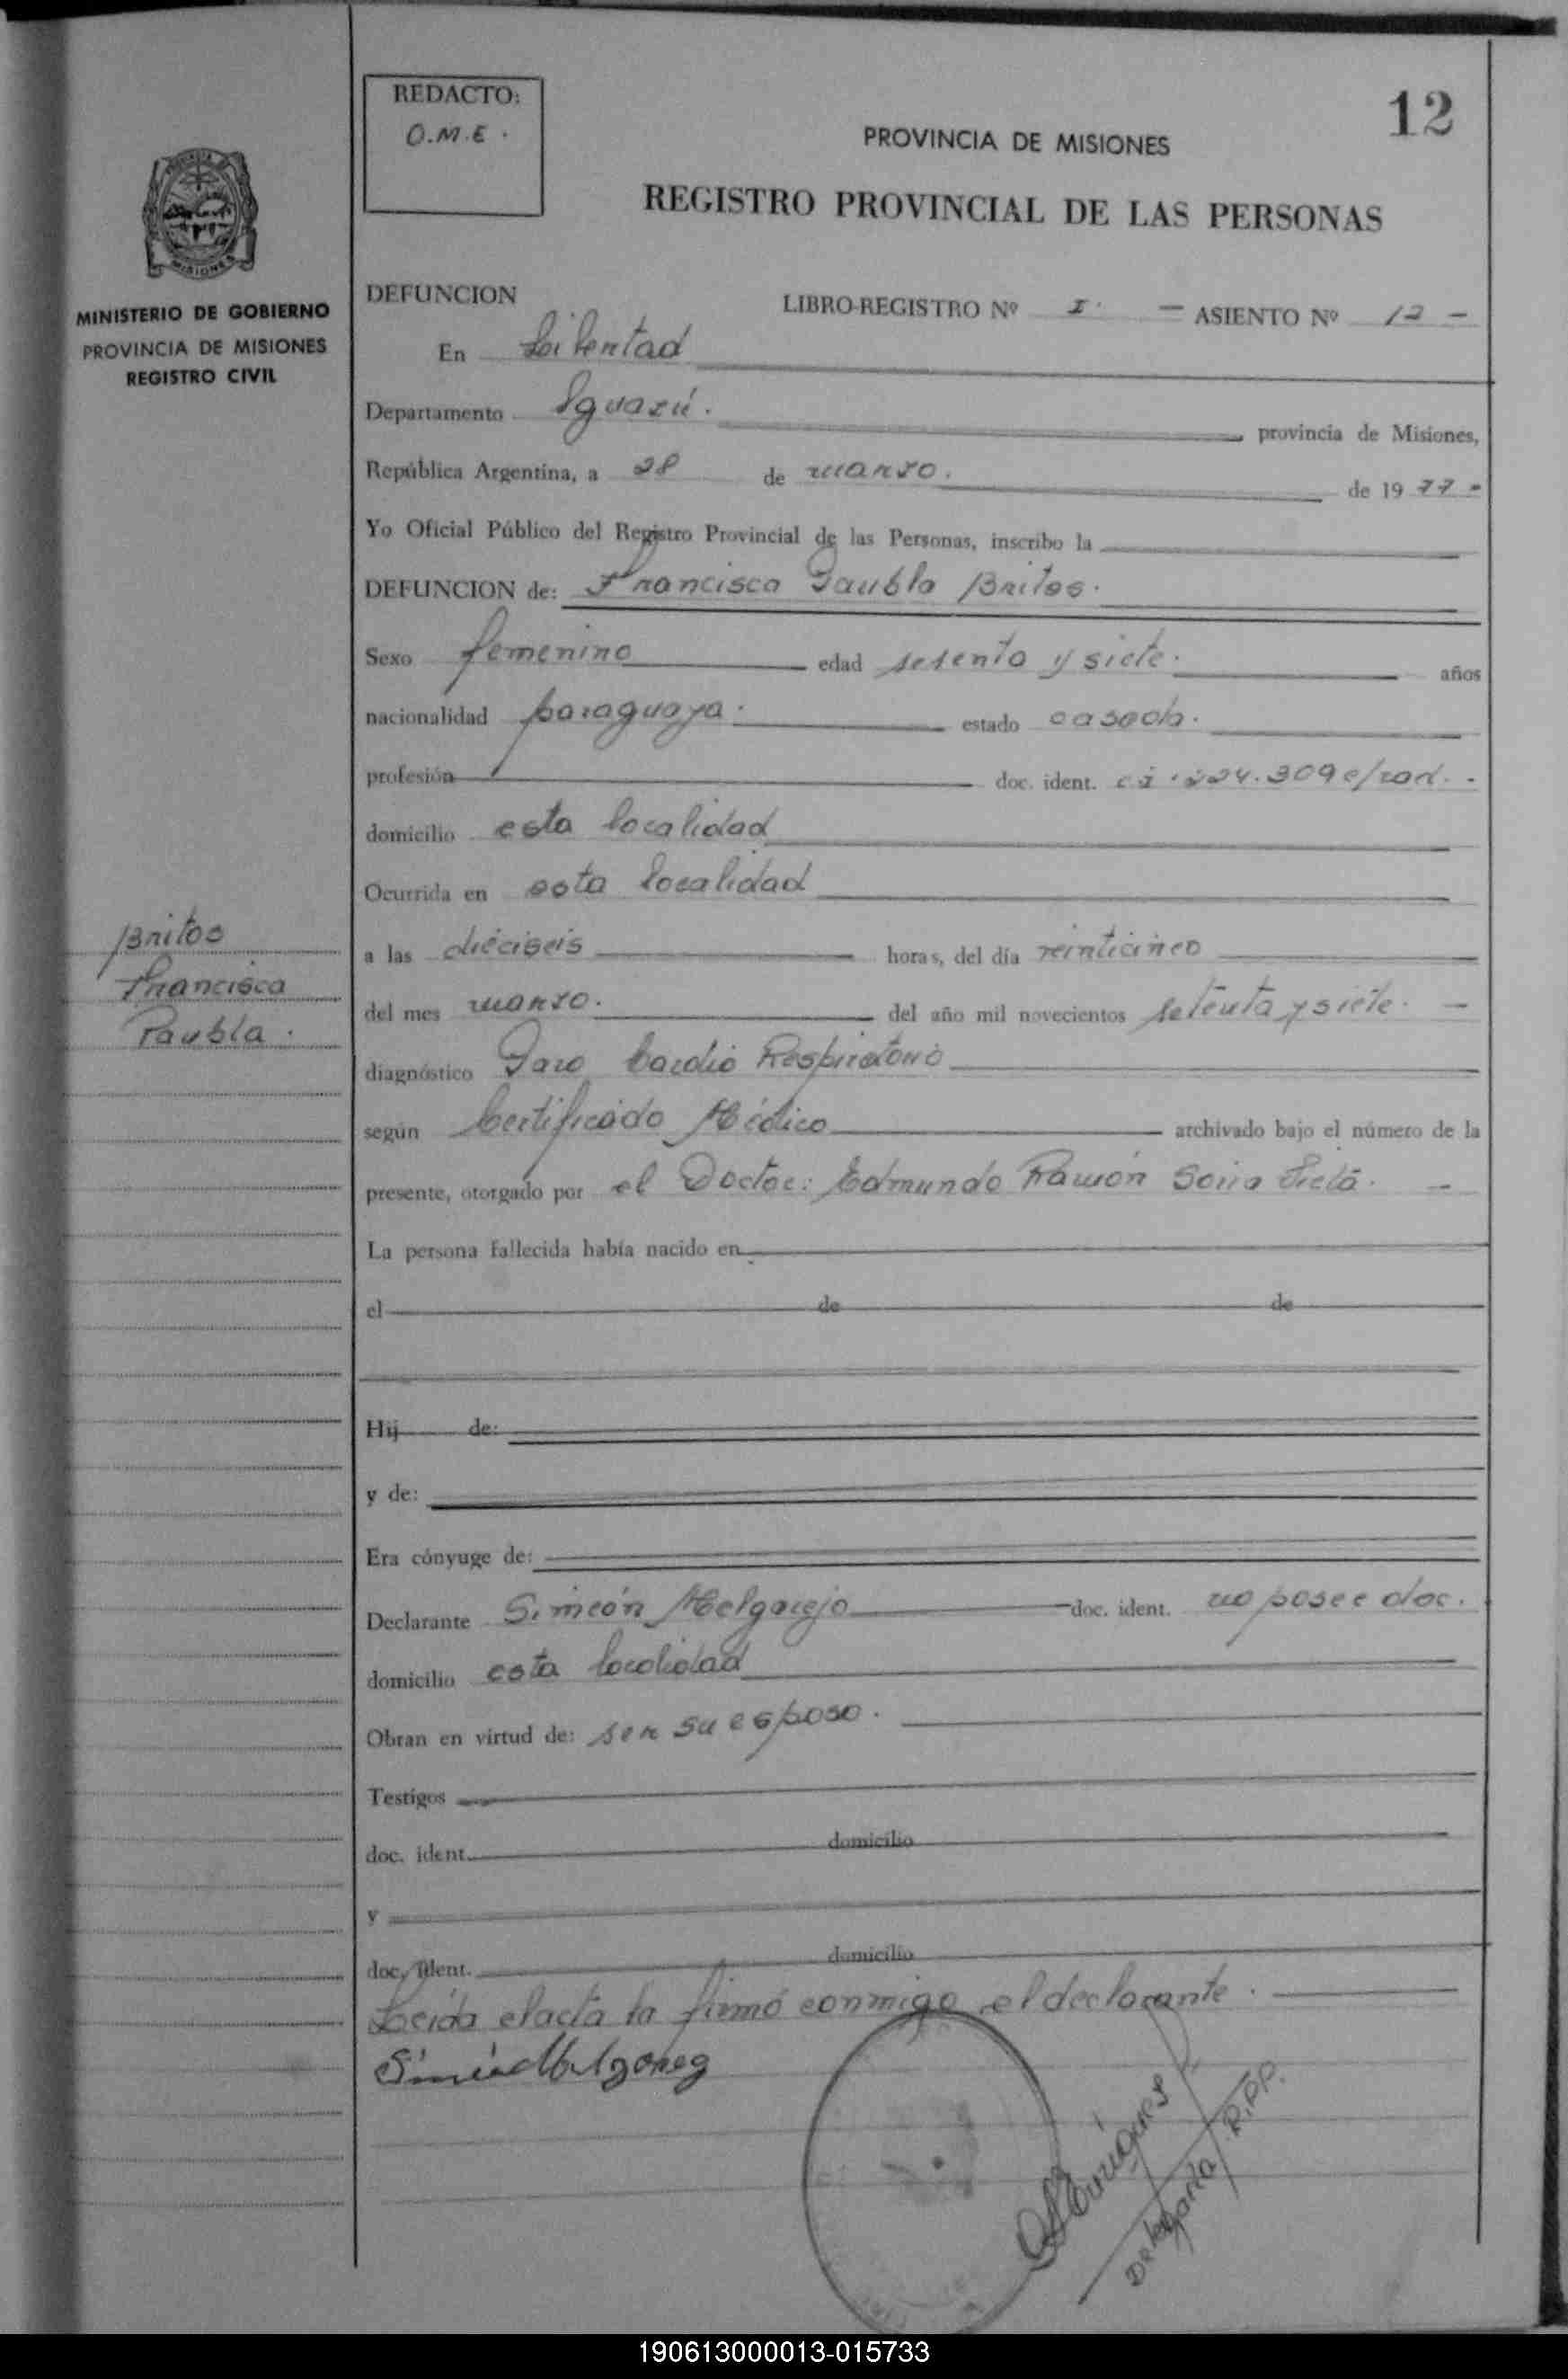 REDACTO:
O.M.E.
12
PROVINCIA DE MISIONES
REGISTRO PROVINCIAL DE LAS PERSONAS
MISIONES
MINISTERIO DE GOBIERNO
PROVINCIA DE MISIONES
REGISTRO CIVIL
DEFUNCION LIBRO-REGISTRO Nº I. - ASIENTO Nº 12 -
En Libertad
Departamento Iguazú. provincia de Misiones,
República Argentina, a 28 de marzo. de 1977 -
Yo Oficial Público del Registro Provincial de las Personas, inscribo la
DEFUNCION de: Francisca Paubla Britos.
Sexo femenino edad setenta y siete. años
nacionalidad paraguaya. estado casada.
profesión doc. ident. 224.309 c/rad. -
domicilio esta localidad
Ocurrida en esta localidad
Britos
Francisca
Paubla.
a las dieciseis horas, del día veinticinco
del mes marzo. del año mil novecientos setenta y siete. -
diagnóstico Paro Cardio Respiratorio
según Certificado Médico archivado bajo el número de la
presente, otorgado por el Doctor: Edmundo Ramón -
La persona fallecida había nacido en
el de de
Hij de:
y de:
Era cónyuge de:
Declarante Simeón Melgarejo doc. ident. no posee doc.
domicilio esta localidad
Obran en virtud de: ser su esposo.
Testigos
doc. ident. domicilio
y
doc. ident. domicilio
Leída el acta la firmó conmigo el declarante.
Delegada R.P.P.
190613000013-015733